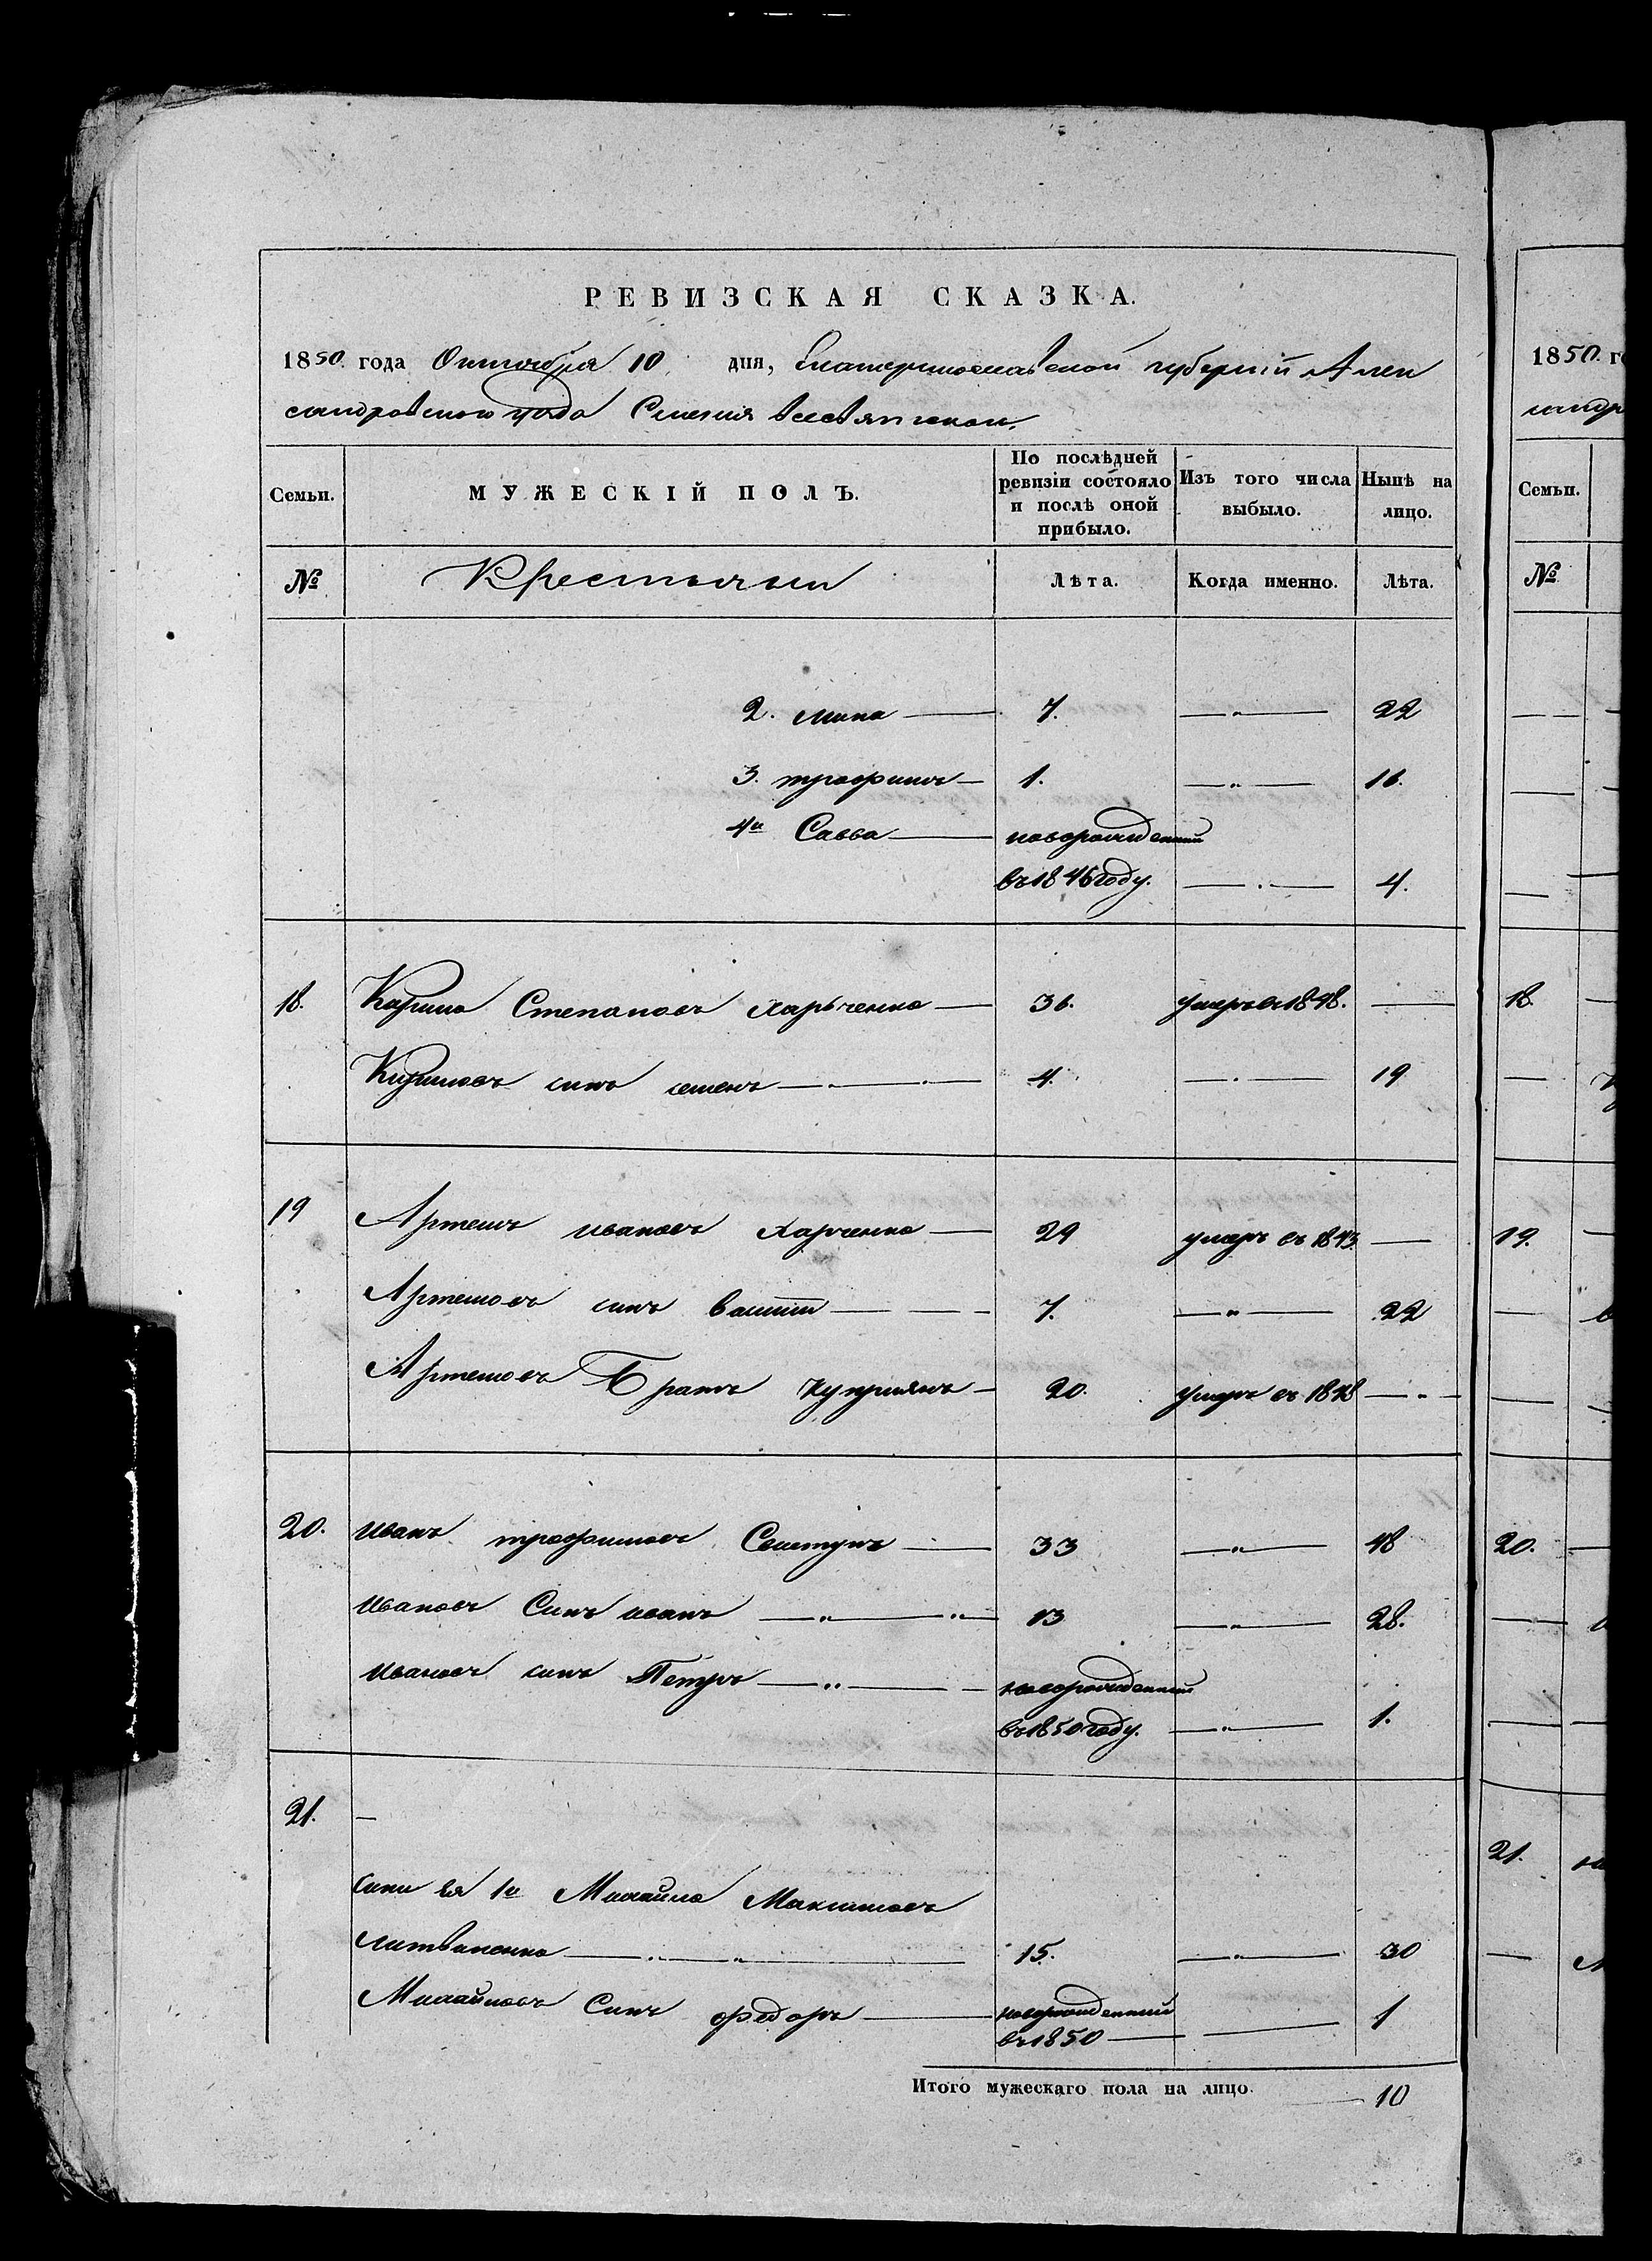 РЕВИЗСКАЯ СКАЗКА.
1850. года Октября 10. дня, Екатеринославской губерніи Алек
сандровского уѣзда Сѣленія Всесвятскои.
Семьи.
МУЖЕСКІЙ ПОЛЪ.
По послѣдней ревизіи состояло и послѣ оной прибыло.
Изъ того числа выбыло.
Нынѣ на лицо.
№ Крестьяни Лѣта. Когда именно. Лѣта.
2. Мина — 7. —"— 22
3. трофимъ — 1. —"— 16.
4й Савва — новорожденній
въ 1846 году. — . — 4.
18. Кирило Степановъ Харьченко — 36. умеръ въ 1848. —
Кириловъ синъ семенъ — . — . — 4. — . — 19
19 Артемъ ивановъ Харченко — 29 умеръ въ 1843. —
Артемовъ синъ Василій — — — 7. —"— 22
Артемовъ Братъ Куприянъ — 20. умеръ въ 1848 — - —
20. Иванъ трофимовъ Свистунъ — 33 —"— 48
Ивановъ Синъ иванъ —"—"— 13 —"— 28.
Ивановъ синъ Петръ —"— — новорожденній
въ 1850 году. —"— 1.
21. —
сини ея 1й Михайло Максимовъ
литвиненко —"—"— 15. —"— 30
Михайловъ Синъ федоръ — новорожденній
въ 1850 — — 1
Итого мужескаго пола на лицо. — 10
1850. го
сандр
Семьи.
№
18.
19.
20.
21.